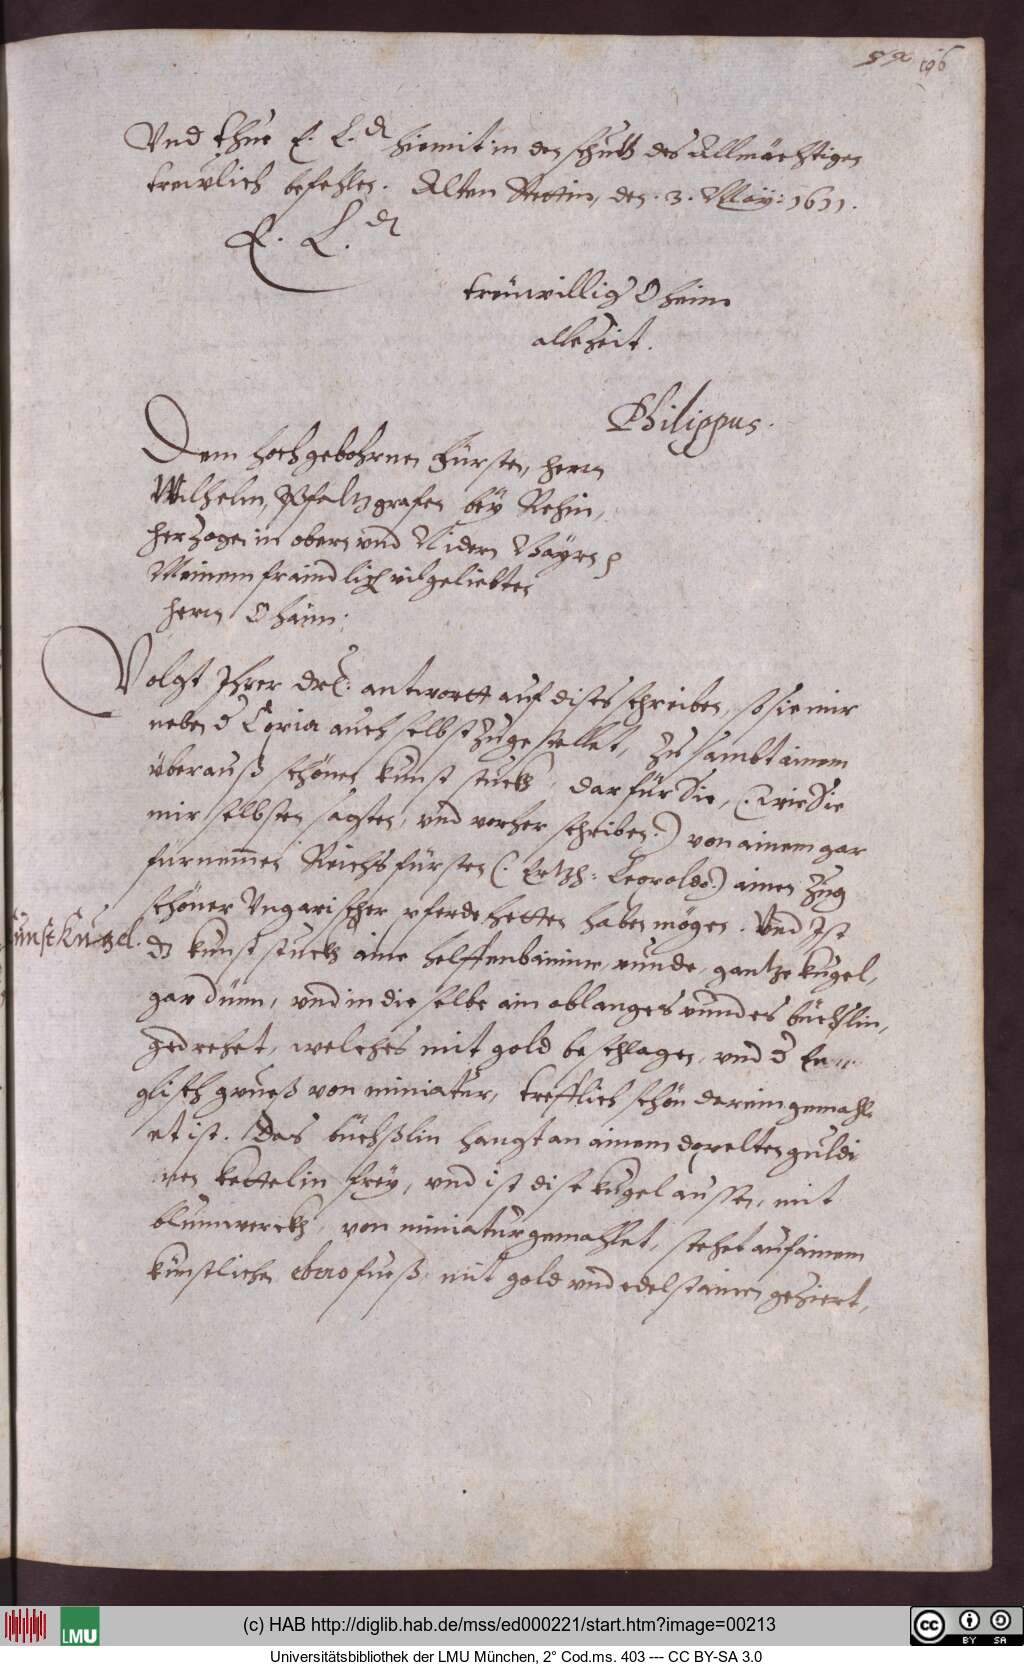 196
Vnd thue E. L.d hiemit in den schutz des Allmächtigen
trewlich befehlen. Alten Stettin, den .3. May: 1611.
E. L.d
trewwillig Ohaim
allezeit.
Philippus.
Dem hochgebohrnen Fürsten, herrn
Wilhelm, Pfaltzgrafen bey Rhein,
herzogen in obern vnd Nidern Bayrn
Meinem fraindlich vilgeliebten
herrn Ohaim.
Volgt Ihrer drl: antwortt auf dises schreiben, so sie mir
neben d Copia auch selbst zugestellet, zu sambt ainem
überauß schönen kunst stuckh, darfür Sie, (: wie Sie
mir selbsten sagten, vnd vorher schreiben:) von ainem gar
fürnemen Reichsfürsten (: Ertzh: Leopoldo:) ainen Zug
schöner Vngarischer pferdt hetten haben mögen. Vnd Ist
Kunst Kugel.
dz kunst stuckh aine helffenbainine, runde, gantze kugel,
gar dünn, vnd in die selbe ain ablanges rundes büchslin,
gedrehet, welches mit gold beschlagen, vnd d En
glisch grueß von miniatur, trefflich schön darein gemahl
et ist. Das büchßlin hangt an ainem dopelten guldi
nen kettelin frey, vnd ist dise kugel aussen, mit
blumwerckh, von miniatur gemahlet, stehet auf ainem
künstlichen ebeno fueß, mit gold vnd edelstainen geziert,
LMU
(c) HAB http://diglib.hab.de/mss/ed000221/start.htm?image=00213
Universitätsbibliothek der LMU München, 2° Cod.ms. 403 --- CC BY-SA 3.0
cc BY SA